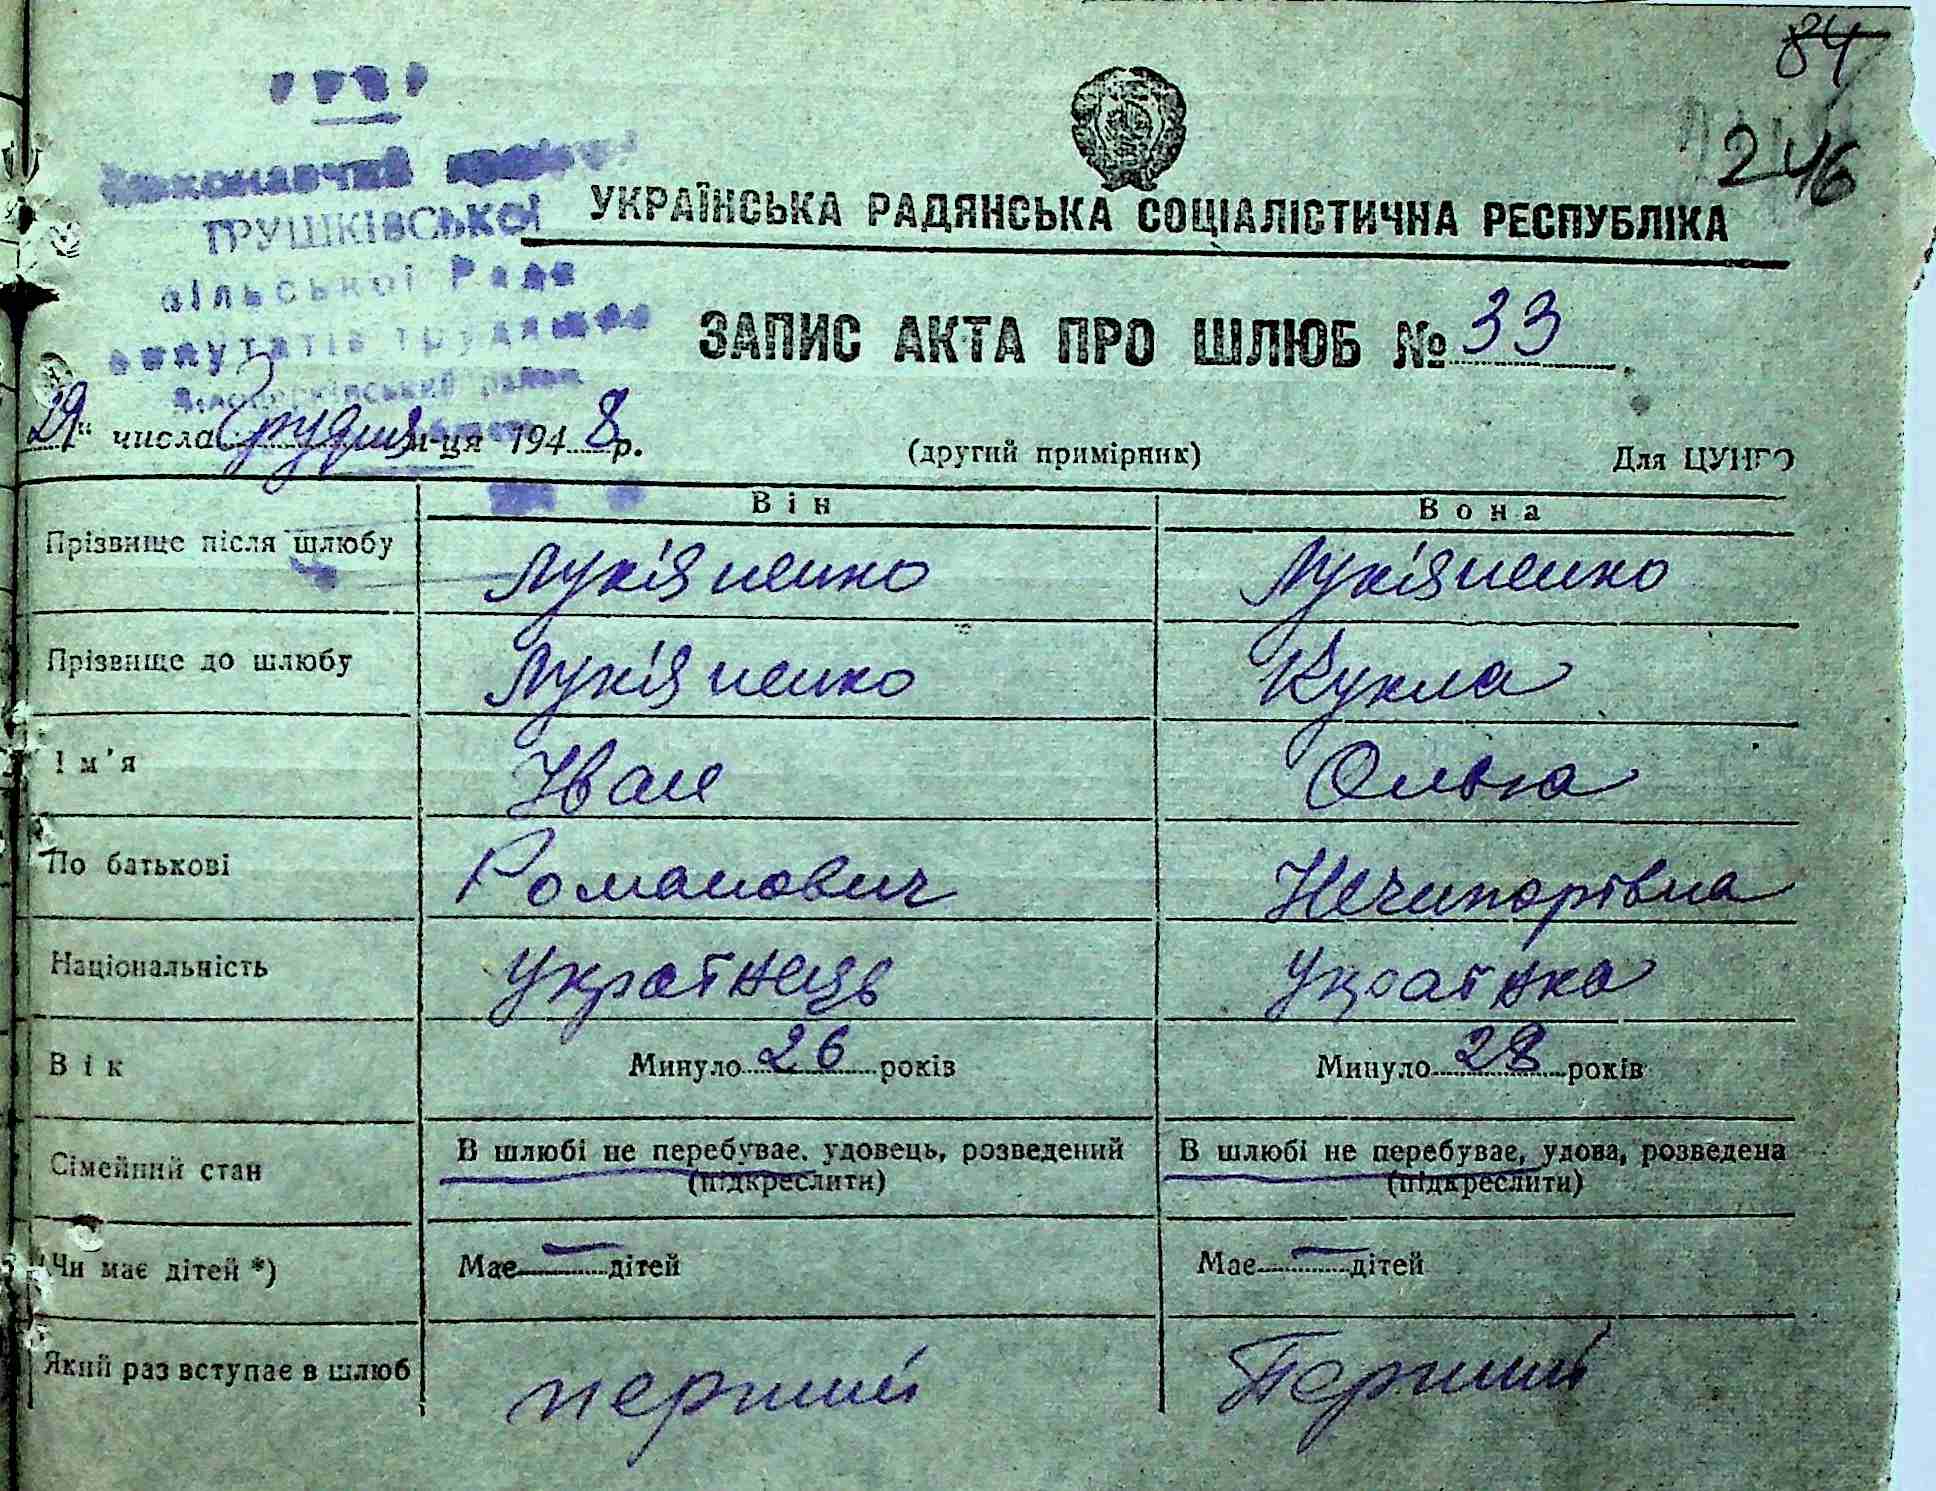 84
246
УРСР
Виконавчий комітет
ТРУШКІВСЬКОЇ
сільської Ради
депутатів трудящих
УКРАЇНСЬКА РАДЯНСЬКА СОЦІАЛІСТИЧНА РЕСПУБЛІКА
ЗАПИС АКТА ПРО ШЛЮБ № 33
29" числа Грудня м-ця 1948 р. (другий примірник) Для ЦУНГО
Він Вона
Прізвище після шлюбу Лукіяненко Лукіяненко
Прізвище до шлюбу Лукіяненко Кукла
Ім'я Иван Ольга
По батькові Романович Нечипорівна
Національність Українець Українка
Вік Минуло 26 років Минуло 28 років
Сімейний стан В шлюбі не перебуває, удовець, розведений В шлюбі не перебуває, удова, розведена
(підкреслити) (підкреслити)
Чи має дітей *) Має — дітей Має — дітей
Який раз вступає в шлюб перший Перший